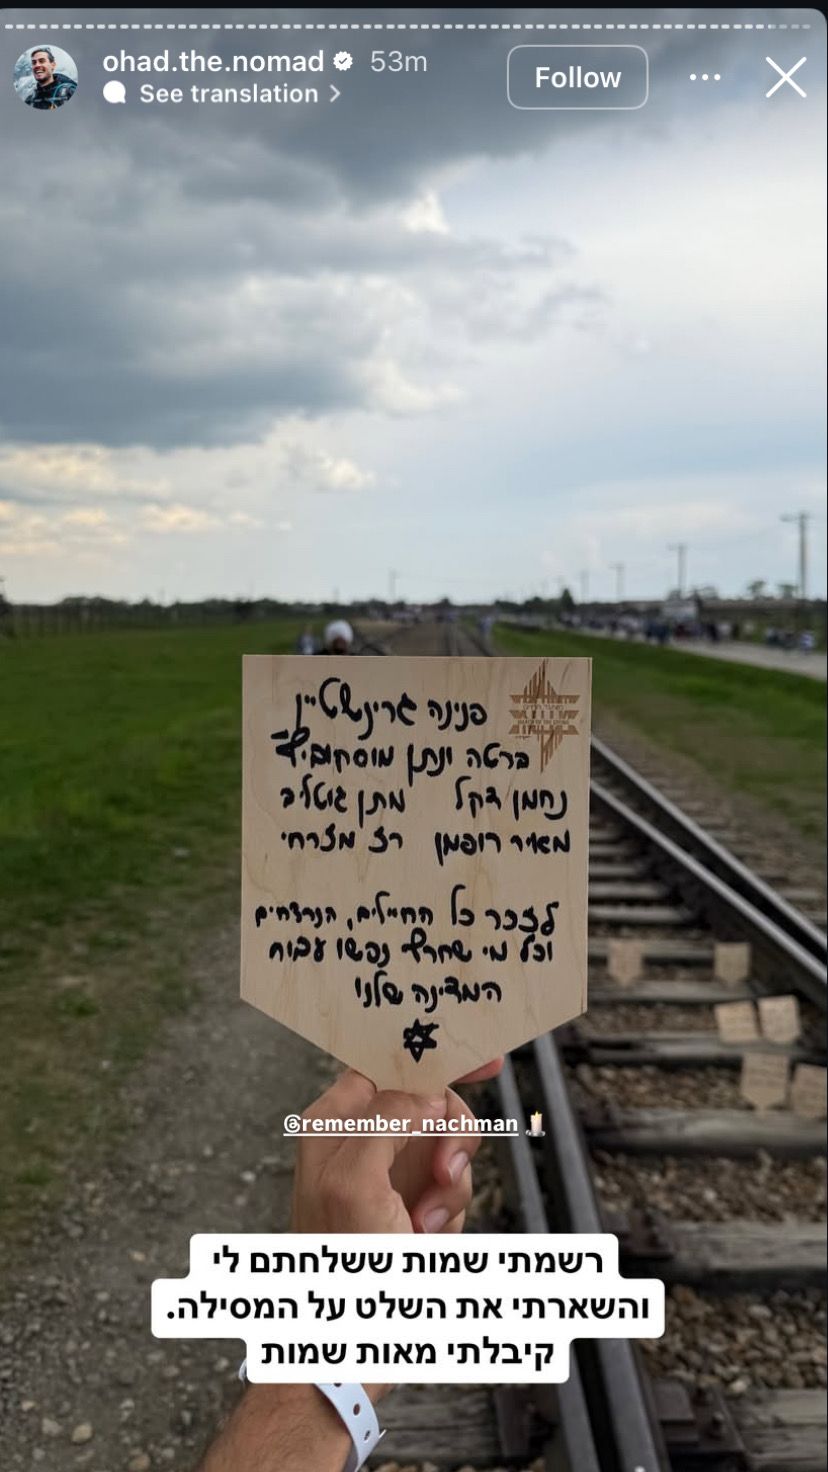 ohad.the.nomad 53m
Follow
See translation >
פנינה גרינשטיין
ברטה ונתן מוסקוביץ
נחמן דקל מתן גוטליב
מאיר רופמן רז מזרחי
לזכר כל החיילים, הנרצחים
וכל מי שחרף נפשו עבור
המדינה שלנו
@remember_nachman
רשמתי שמות ששלחתם לי
והשארתי את השלט על המסילה.
קיבלתי מאות שמות